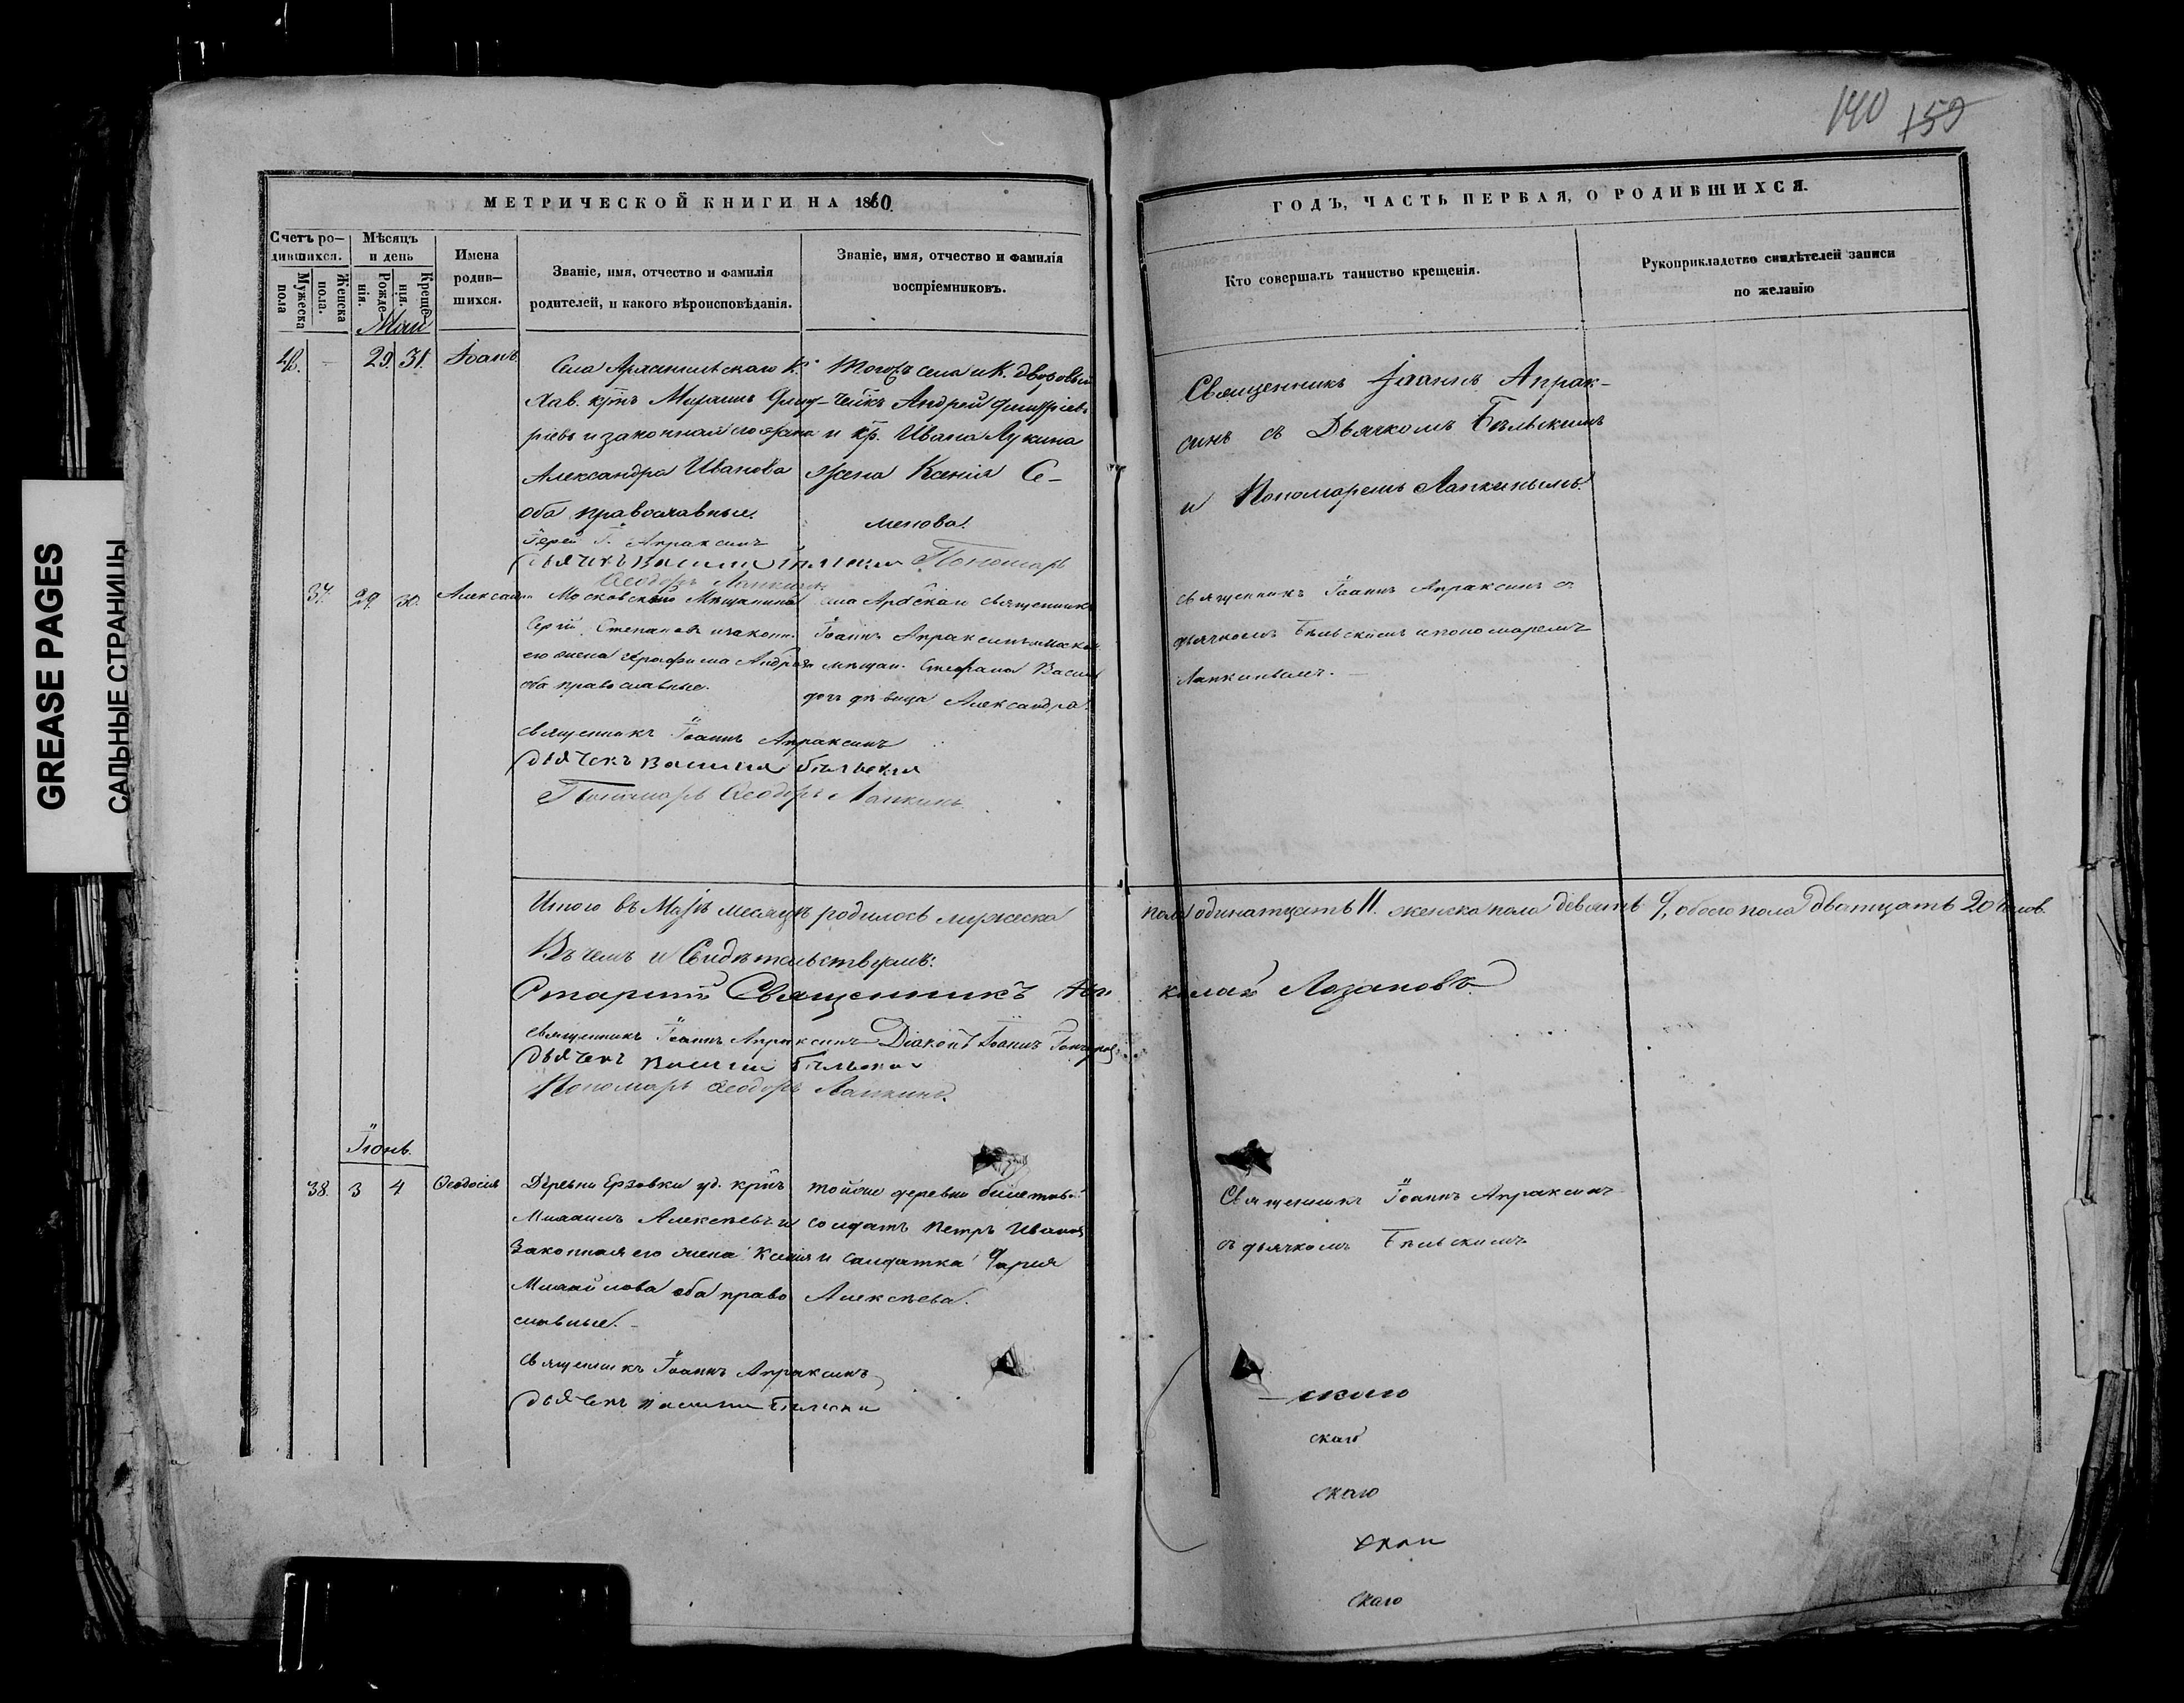 140 159
МЕТРИЧЕСКОЙ КНИГИ НА 1860.
ГОДЪ, ЧАСТЬ ПЕРВАЯ, О РОДИВШИХСЯ.
Счетъ ро-
дившихся.
Мужеска
пола
Женска
пола.
Мѣсяцъ
и день
Рожде-
нія.
Креще-
нія.
Имена
родив-
шихся.
Званіе, имя, отчество и фамилія
родителей, и какого вѣроисповѣданія.
Званіе, имя, отчество и фамилія
воспріемниковъ.
Кто совершалъ таинство крещенія.
Рукоприкладство свидѣтелей записи
по желанію
Маи
29. 31. Іоанъ.
Села
и законная его жена
Александра Иванова
оба православные.
Іерей І. Апраксинъ
Пономарь
Ѳеодоръ Лапкинъ
Тогожъ села и К. дворовый
человѣкъ Андрей
и кр. Ивана Лукина
жена Ксенія Се-
менова.
Священникъ Іоаннъ Апрак-
синъ съ Дьячкомъ Бѣльскимъ
и Пономаремъ Лапкинымъ.
37. 29. 30.
Московскаго Мѣщанина
Сергій Степановъ и закон.
его жена Андр
оба православные.
священникъ Іоаннъ Апраксинъ
дьячекъ Василій Бѣльскій
Пономарь Ѳеодоръ Лапкинъ.
священникъ
Іоаннъ Апраксинъ
мѣщан. Стефана Васил
дочь дѣвица Александра.
священникъ Іоаннъ Апраксинъ съ
дьячкомъ Бѣльскимъ и пономаремъ
Лапкинымъ.
Итого въ Маіѣ месяцѣ родилось мужеска
пола одинатцать 11. женска пола девять 9, обоего пола дватцать 20 челов.
Въ чемъ и Свидѣтельствуемъ:
Старшій Священникъ Николай Лозановъ.
священникъ Іоаннъ Апраксинъ Діаконъ Іоаннъ
дьячекъ Василій Бѣльскій
Пономарь Ѳеодоръ Лапкинъ.
Іюнь.
38. 3 4 Ѳеодосія
Деревни Ерзовки уд. крнъ
Михаилъ Алексѣевъ и
законная его жена Ксенія
Михайлова оба право
славные.
священникъ Іоаннъ Апраксинъ
дьячекъ Василій Бѣльскій
тойже деревни билетный
солдатъ Петръ Иванов
и солдатка Дарія
Алексѣева.
Священникъ Іоаннъ Апраксинъ
съ дьячкомъ Бѣльскимъ
скаго
скаго
скаго
скаго
GREASE PAGES
САЛЬНЫЕ СТРАНИЦЫ